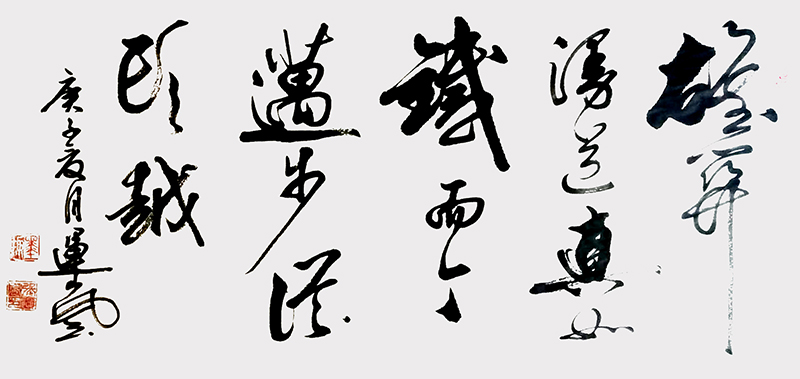 雄关
漫道真如
铁而今
迈步从
头越
庚子夏月运风